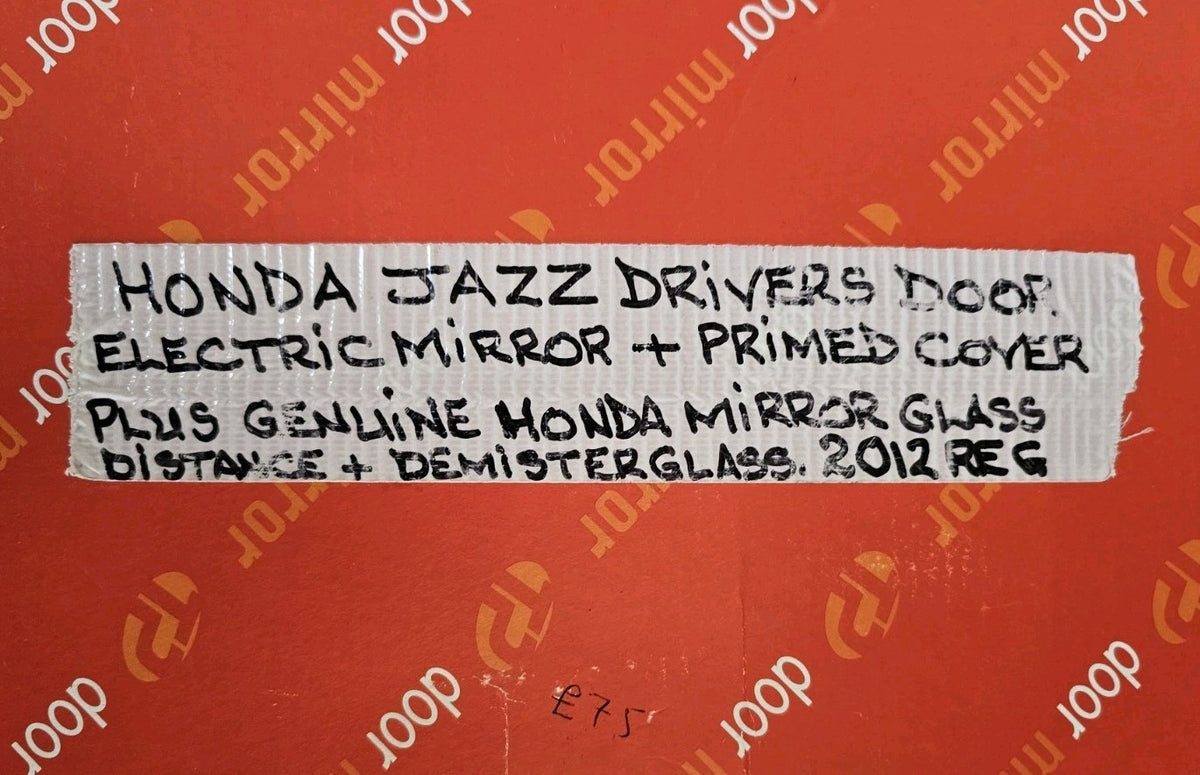 door
door
door
door
mirror
mirror
mirror
mirror
HONDA JAZZ DRiVERS DOOR
ELECTRiC MiRROR + PRiMED COVER
PLUS GENUiNE HONDA MiRROR GLASS
DiSTANCE + DEMiSTER GLASS. 2012 REG
mirror
mirror
mirror
door
door
door
door
£75